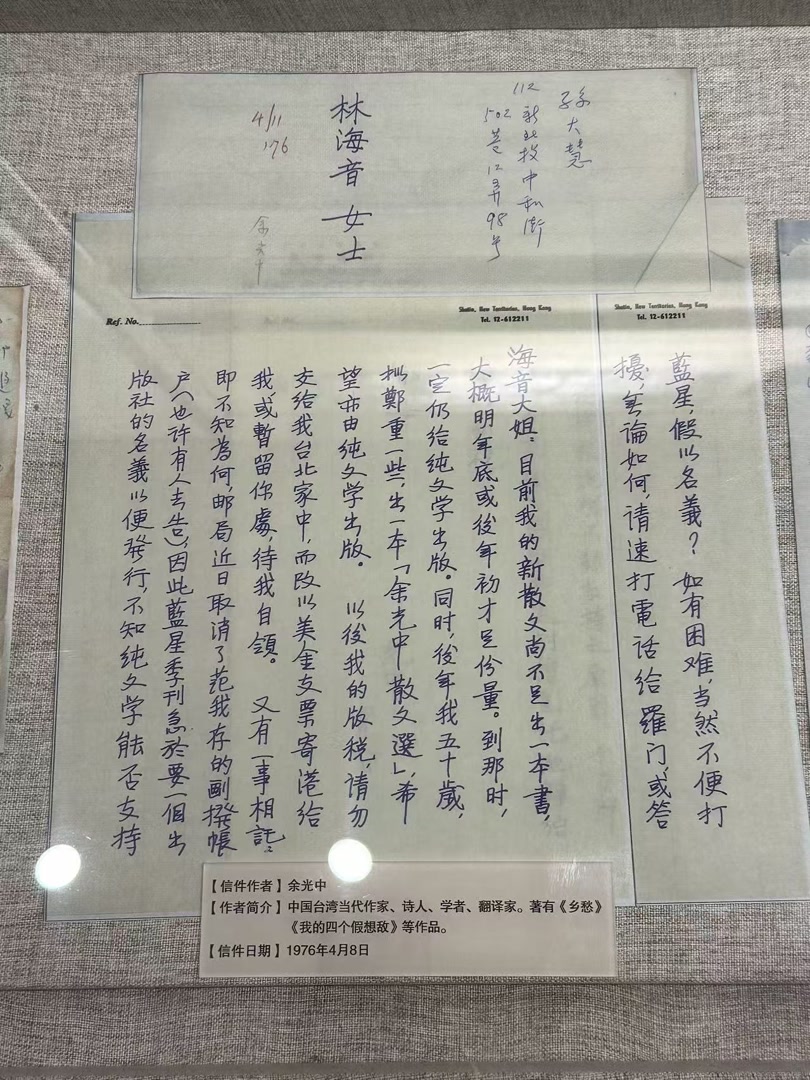 孫大慧
112新北投中和街
502巷12弄98号
林海音 女士
4/11
'76
余光中
Ref. No.
Shatin, New Territories, Hong Kong
Tel. 12-612211
海音大姐：目前我的新散文尚不足出一本書，
大概明年底或後年初才足份量。到那時，
一定仍给纯文学出版。同时，後年我五十歲，
拟鄭重一些，出一本「余光中散文選」，希
望亦由纯文学出版。 以後我的版税，请勿
交给我台北家中，而改以美金支票寄港给
我，或暫留你處，待我自領。 又有一事相託：
即不知為何，邮局近日取消了范我存的劃撥帳
户（也许有人去告），因此藍星季刊急於要一個出
版社的名義以便發行，不知纯文学能否支持
Shatin, New Territories, Hong Kong
Tel. 12-612211
藍星，假以名義？ 如有困难，当然不便打
擾，無論如何，请速打電话给羅门，或答
【信件作者】余光中
【作者简介】中国台湾当代作家、诗人、学者、翻译家。著有《乡愁》
《我的四个假想敌》等作品。
【信件日期】1976年4月8日